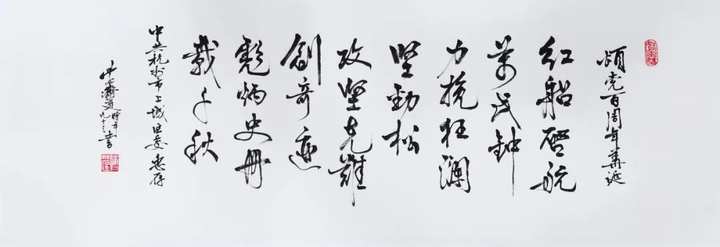 颂党百周年华诞
红船啓航
萬民钟
力挽狂澜
坚勁松
攻坚克難
創奇迹
彪炳史册
載千秋
中共杭州市上城区委惠存
书